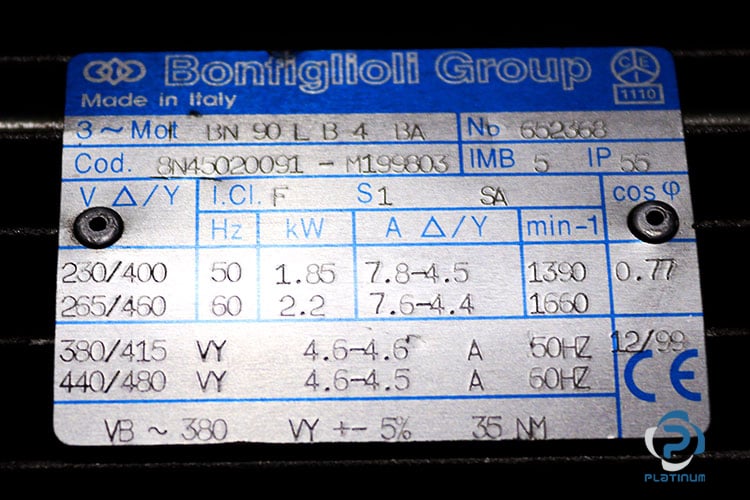 Bonfiglioli Group
CEI
1110
Made in Italy
3~Mot BN 90 L B 4 BA No 652368
Cod. 8N45020091 - M199803 IMB 5 IP 55
V Δ/Y I.Cl. F S1 SA cos φ
Hz kW A Δ/Y min-1
230/400 50 1.85 7.8-4.5 1390 0.77
265/460 60 2.2 7.6-4.4 1660
380/415 VY 4.6-4.6 A 50HZ 12/99
440/480 VY 4.6-4.5 A 60HZ
CE
VB ~ 380 VY +- 5% 35 NM
PLATINUM